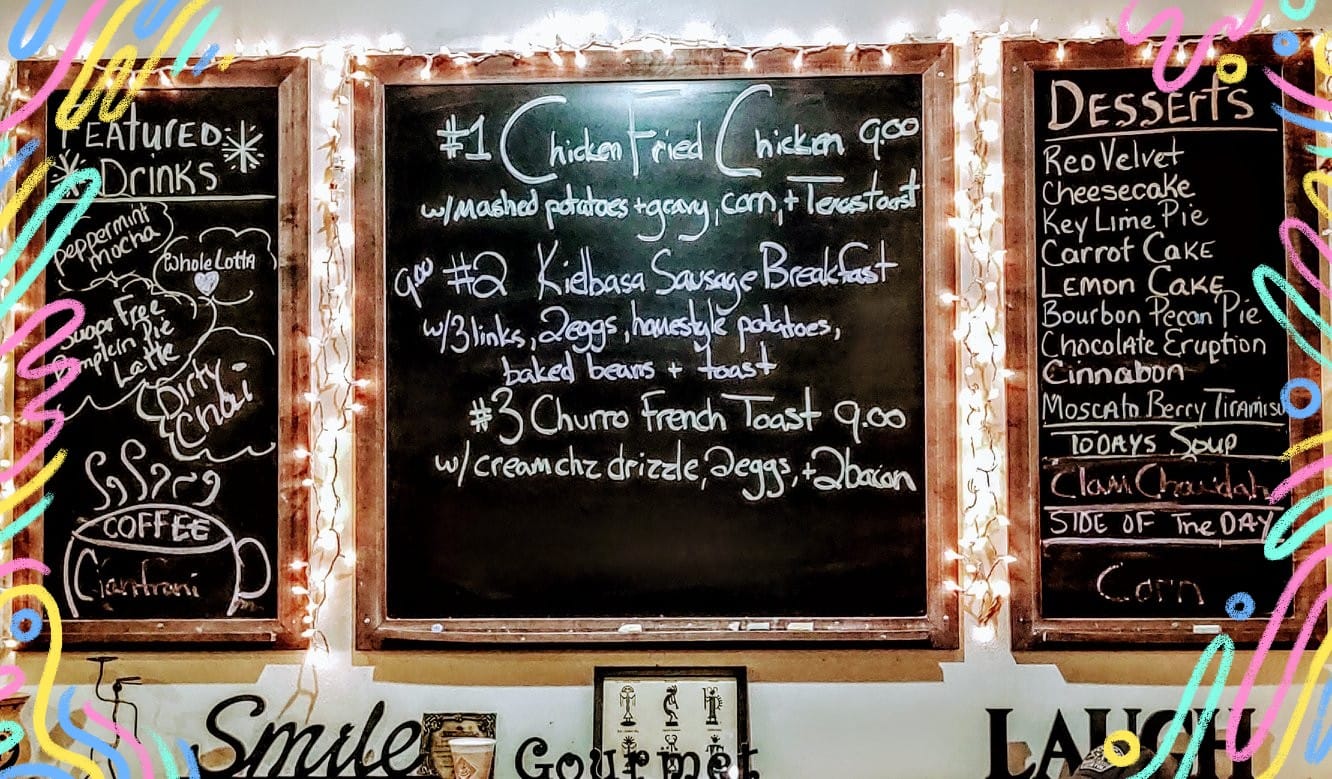 FEATURED
DRINKS
peppermint
mocha
Whole Lotta
Sugar Free
Pumpkin Pie
Latte
Dirty
Chai
COFFEE
Cianfrani
#1 Chicken Fried Chicken 9.00
w/mashed potatoes + gravy, corn, + Texas toast
9.00 #2 Kielbasa Sausage Breakfast
w/3 links, 2 eggs, homestyle potatoes,
baked beans + toast
#3 Churro French Toast 9.00
w/ cream chz drizzle, 2 eggs, + 2 bacon
DESSERTS
Red Velvet
Cheesecake
Key Lime Pie
Carrot Cake
Lemon Cake
Bourbon Pecan Pie
Chocolate Eruption
Cinnabon
Moscato Berry Tiramisu
TODAYS SOUP
Clam Chowdah
SIDE OF THE DAY
Corn
Smile
Gourmet
LAUGH